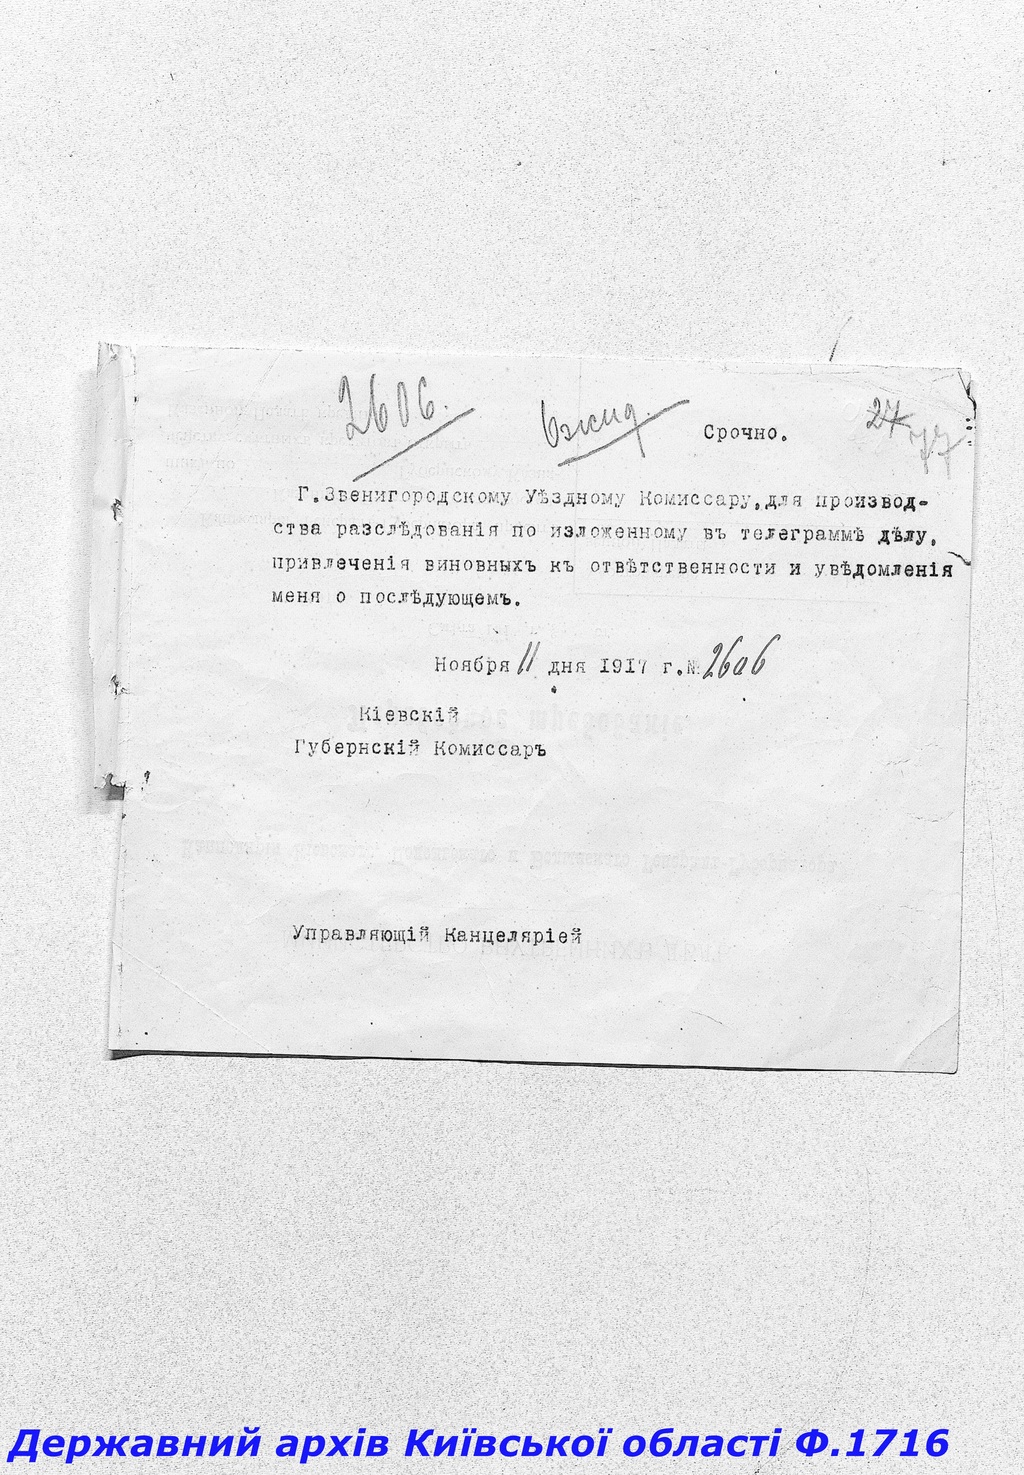 2606.
Срочно.
27
77
Г.Звенигородскому Уѣздному Комиссару,для производ-
ства разслѣдованія по изложенному въ телеграммѣ дѣлу,
привлеченія виновныхъ къ отвѣтственности и увѣдомленія
меня о послѣдующемъ.
Ноября 11 дня 1917 г.№ 2606
Кіевскій
Губернскій Комиссаръ
Управляющій Канцеляріей
Державний архів Київської області Ф.1716